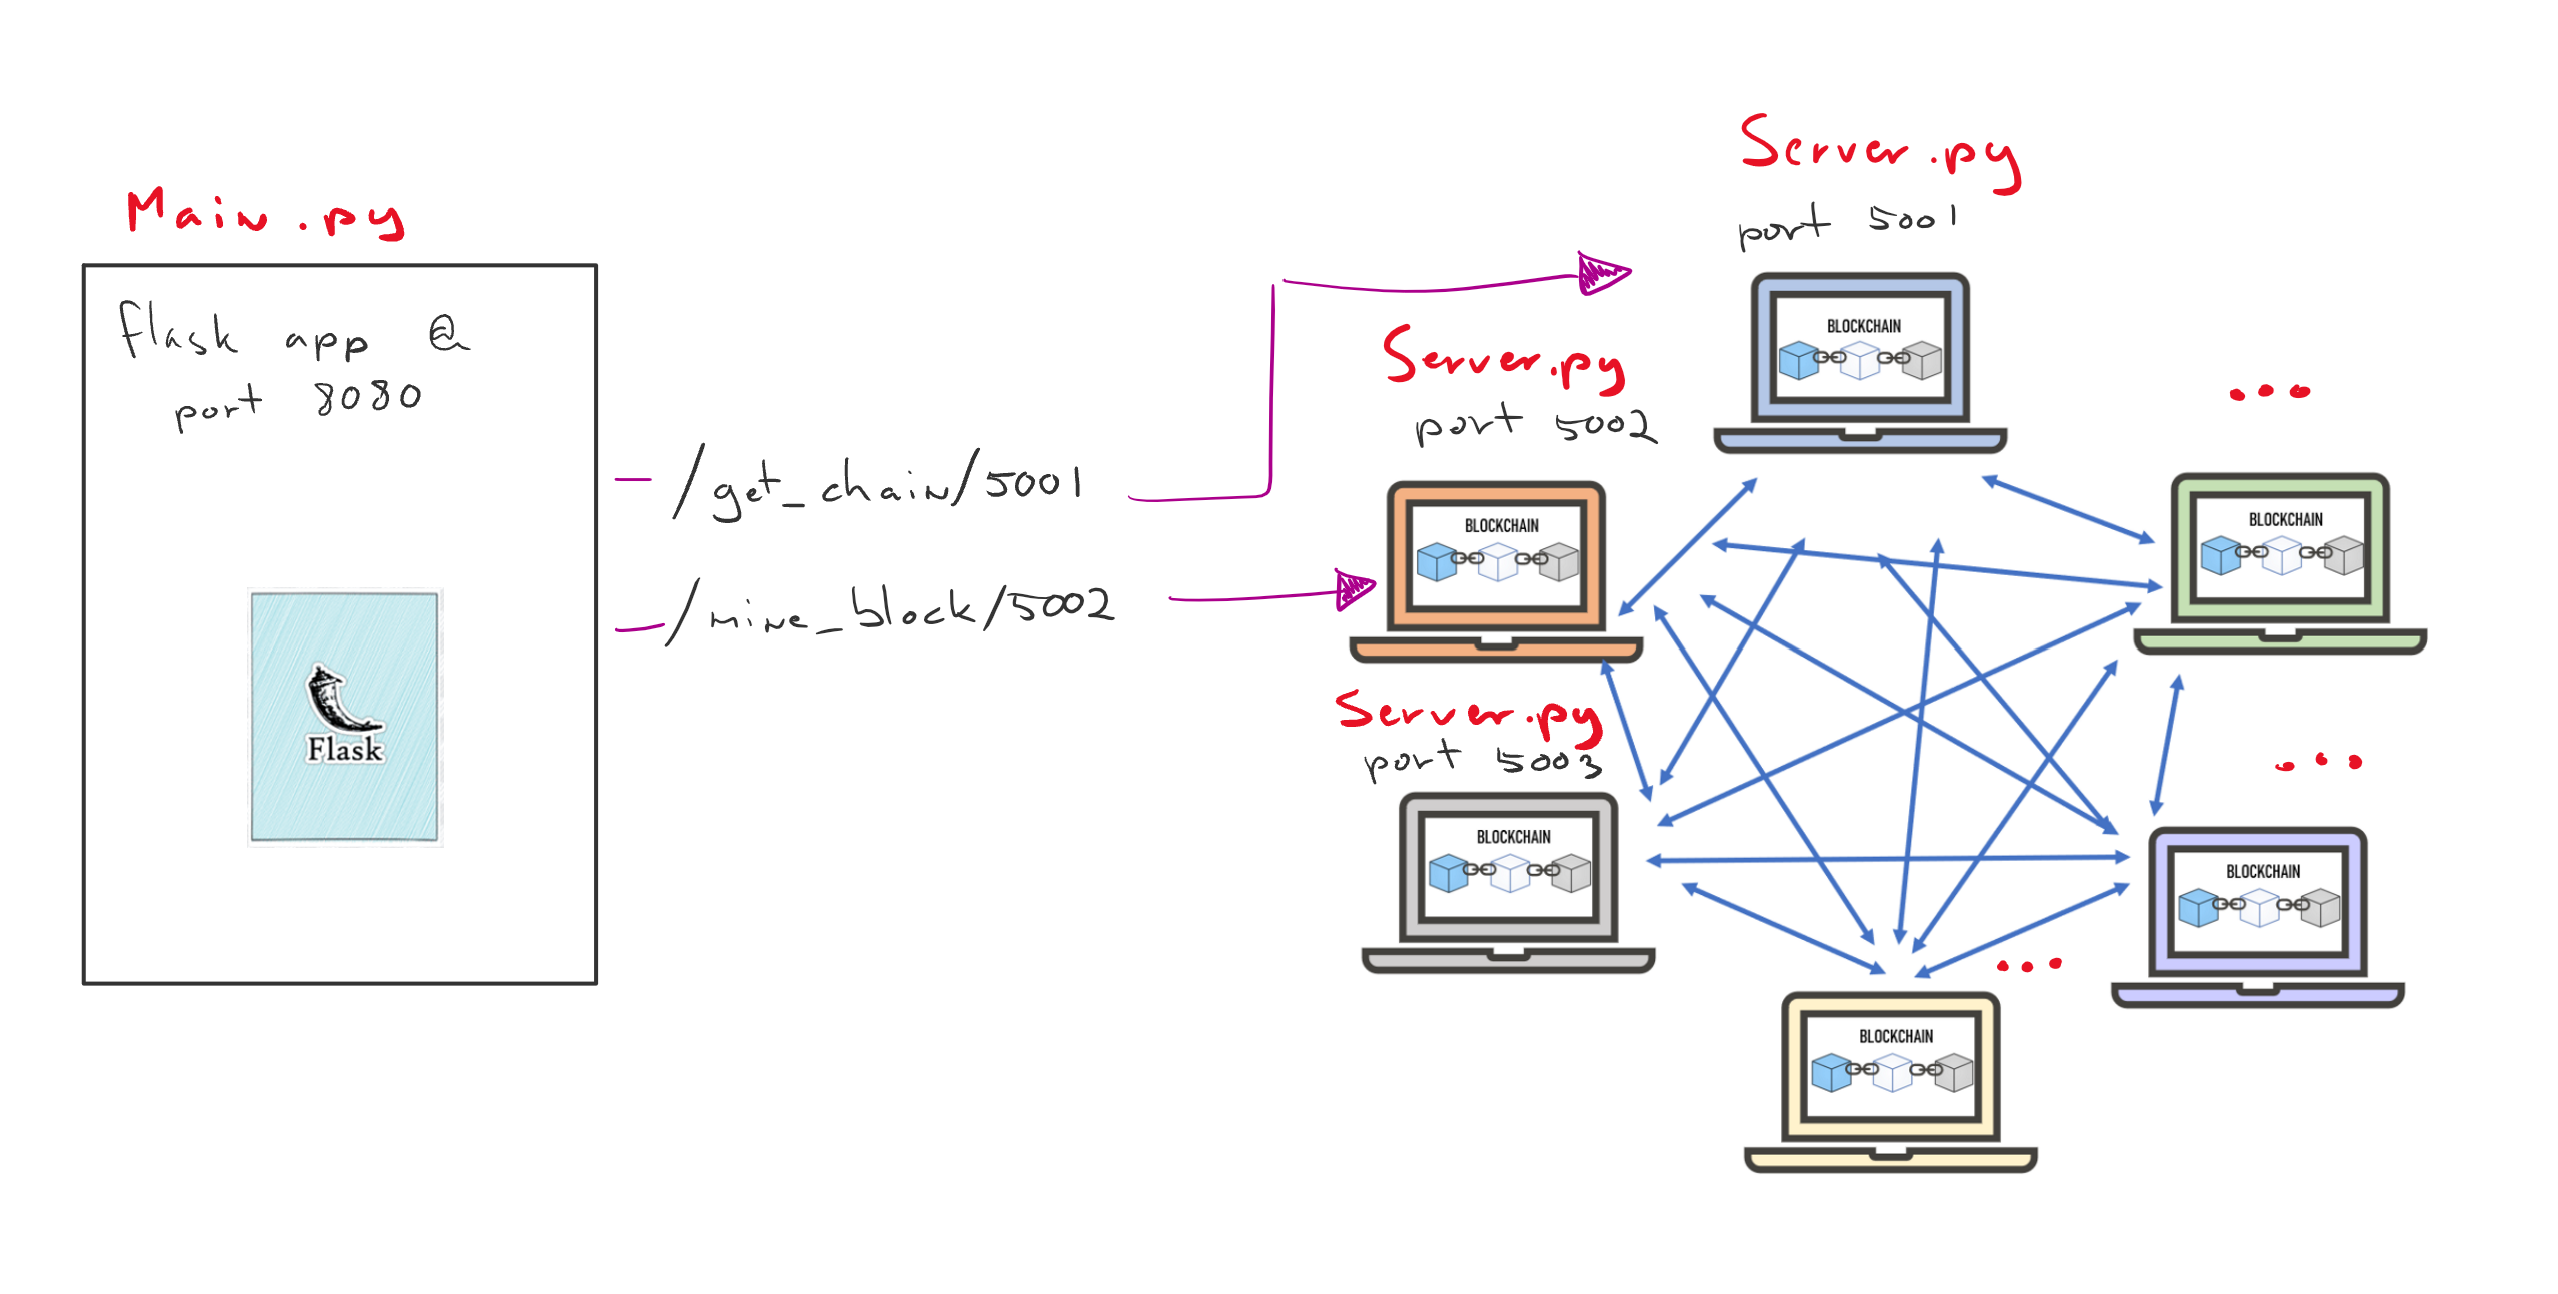 Main.py
flask app @
port 8080
Flask
/get_chain/5001
/mine_block/5002
Server.py
port 5001
BLOCKCHAIN
Server.py
port 5002
BLOCKCHAIN
...
BLOCKCHAIN
Server.py
port 5003
BLOCKCHAIN
...
BLOCKCHAIN
...
BLOCKCHAIN